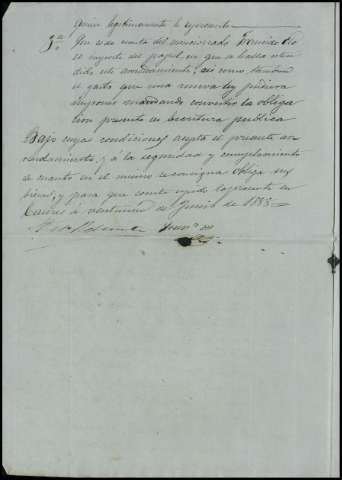 legitimamente le represente
3ª Que es de cuenta del mencionado Francisco
el importe del papel, en que se halla esten
dido este arrendamiento, así como tambien
el gasto que una nueva ley pudiera
imponer mandando convertir la obliga
cion presente en escritura publica
Bajo cuyas condiciones acepta el presente ar
rendamiento, y á la seguridad y cumplimiento
de cuanto en el mismo se consigna obliga sus
bienes, y para que conste expido la presente en
Caceres á veintiuno de Junio de 1883